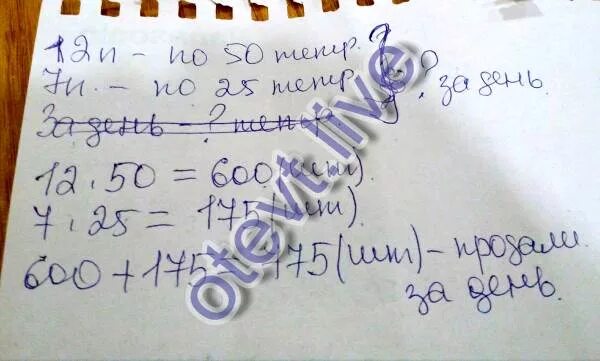 12п - по 50 тетр. ?
7п. - по 25 тетр. ? за день.
За день - ? тетр
12 . 50 = 600 (шт)
7 . 25 = 175 (шт)
600 + 175 = 175 (шт) - продали
за день.
otevt.live